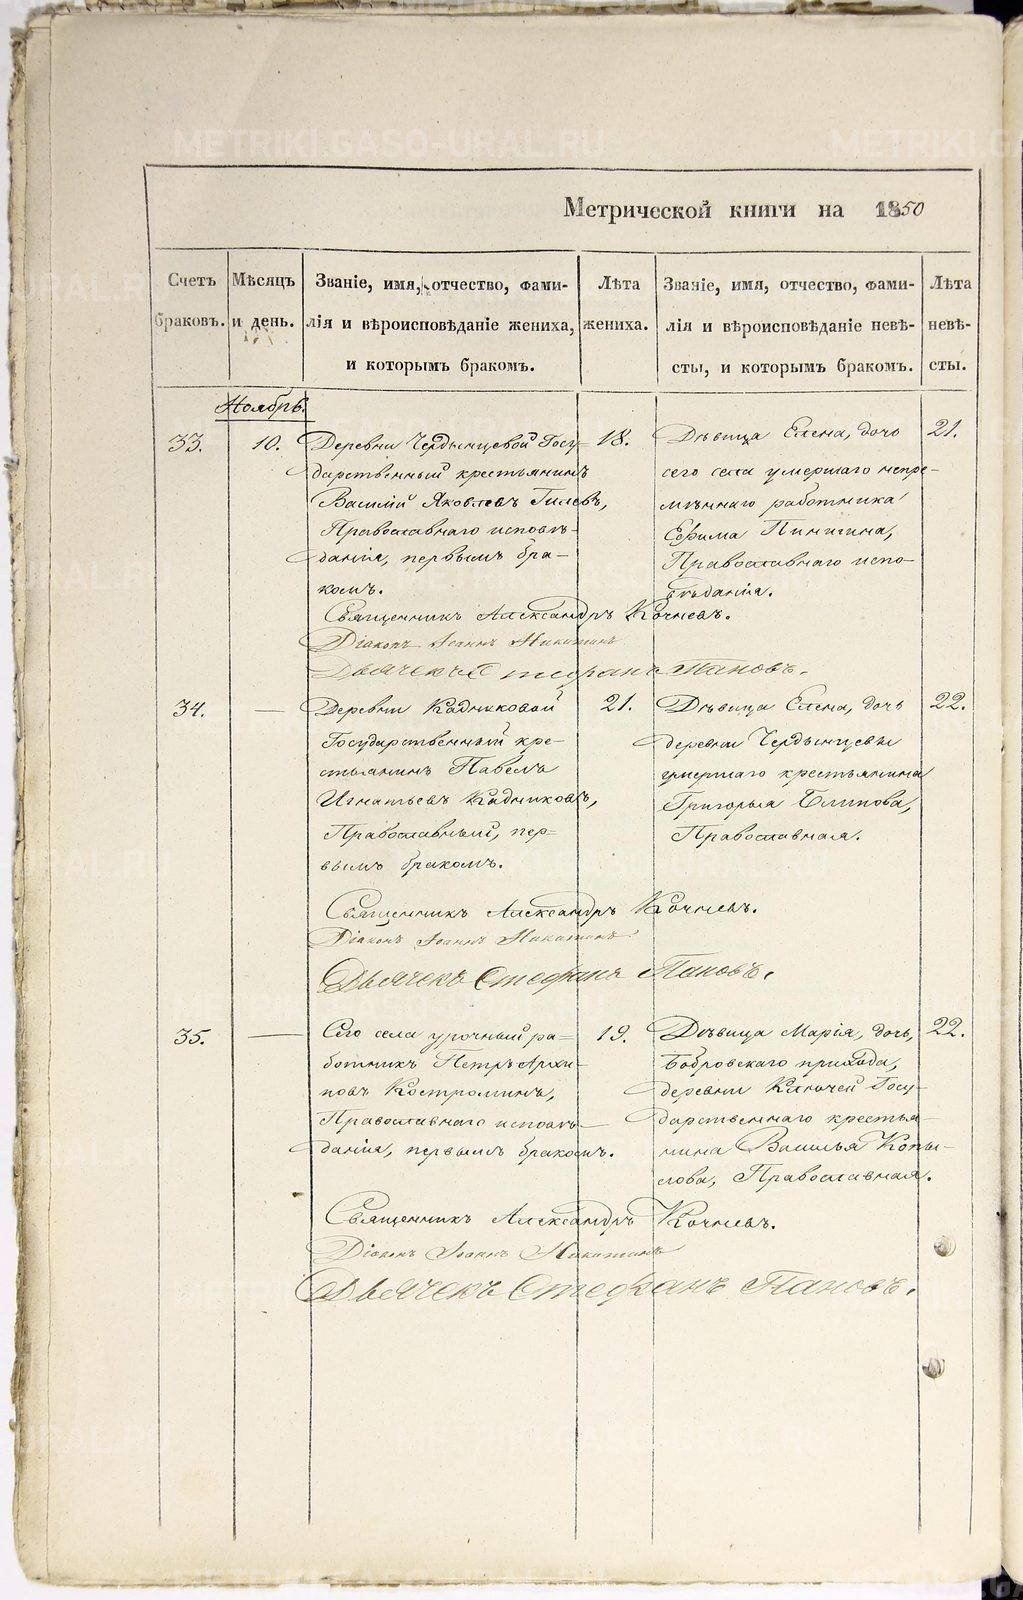 METRIKI.GASO-URAL.RU
Метрической книги на 1850
Счетъ браковъ.
Мѣсяцъ и день.
Званіе, имя, отчество, фами-
лія и вѣроисповѣданіе жениха,
и которымъ бракомъ.
Лѣта жениха.
Званіе, имя, отчество, фами-
лія и вѣроисповѣданіе невѣ-
сты, и которымъ бракомъ.
Лѣта невѣ-
сты.
Ноябрь.
33.
10.
Деревни Чердынцевой Госу-
дарственный крестьянинъ
Василій Яковлевъ Гилевъ,
Православнаго исповѣ-
данія, первымъ бра-
комъ.
18.
Дѣвица Елена, дочь
сего села умершаго непре-
мѣннаго работника
Ефима Пинигина,
Православнаго испо-
вѣданія.
21.
Священникъ Александръ Кочневъ.
Діаконъ Іоаннъ Никитинъ
Дьячекъ Стефанъ Поповъ.
34.
—
Деревни Кадниковой
Государственный кре-
стьянинъ Павелъ
Игнатьевъ Кадниковъ,
Православный, пер-
вымъ бракомъ.
21.
Дѣвица Елена, дочь
деревни Чердынцевы
умершаго крестьянина
Григорья Блинова,
Православная.
22.
Священникъ Александръ Кочневъ.
Діаконъ Іоаннъ Никитинъ
Дьячекъ Стефанъ Поповъ.
35.
—
Сего села урочный ра-
ботникъ Петръ Архи-
повъ Костроминъ,
Православнаго исповѣ-
данія, первымъ бракомъ.
19.
Дѣвица Марія, дочь,
Бобровскаго прихода,
деревни Ключей Госу-
дарственнаго крестья-
нина Василья Копы-
лова, Православная.
22.
Священникъ Александръ Кочневъ.
Діаконъ Іоаннъ Никитинъ
Дьячекъ Стефанъ Поповъ.